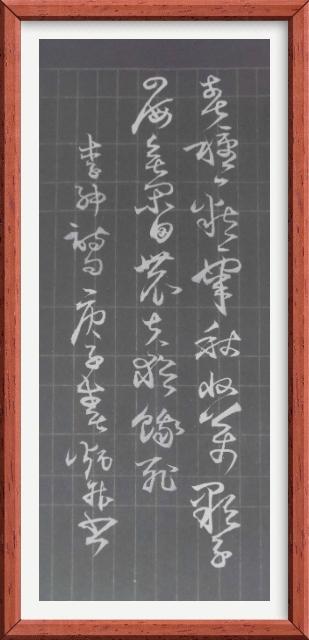 春種一粒粟秋收萬顆子
四海無閑田農夫猶餓死
李紳詩句庚子春書